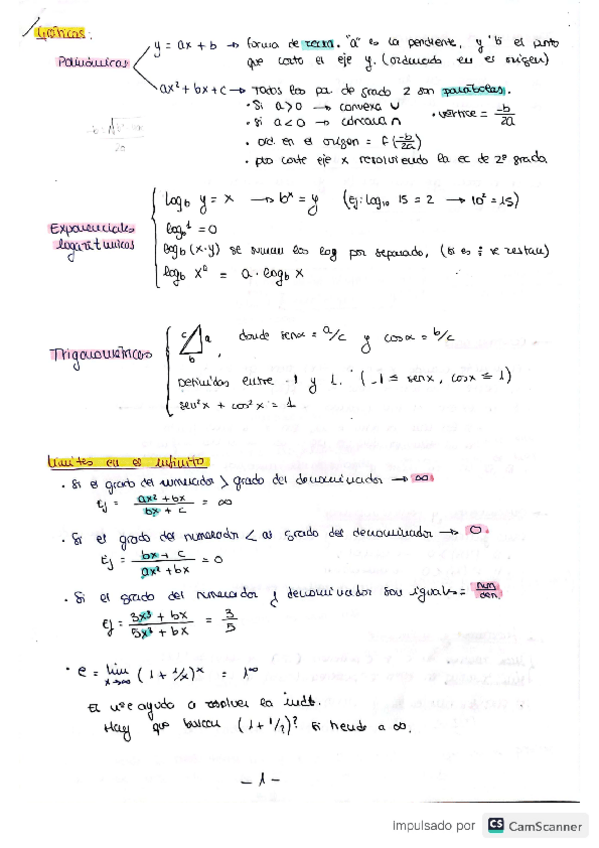 Gráficas:
Polinómicas
y = ax + b → forma de recta. "a" es la pendiente, y "b" el punto
que corta el eje y. (ordenada en el origen)
ax² + bx + c → Todas las de grado 2 son parábolas.
· Si a > 0 → convexa ∪
· Si a < 0 → cóncava ∩
· vértice = -b/2a
· ord. en el origen = f(-b/2a)
· pto corte eje x resolviendo la ec de 2º grado
Exponenciales
logarítmicas
log_b y = x → bˣ = y (ej: log₁₀ 15 = 2 → 10² = 15)
= 0
log_b (x·y) se suman los log por separado, (si es ÷ se restan)
log_b xᵃ = a · log_b x
Trigonométricas
c a
b
donde senα = a/c y cosα = b/c
Definidas entre -1 y 1. (-1 ≤ senx, cosx ≤ 1)
sen²x + cos²x = 1
Límites en el infinito
· Si el grado del numerador > grado del denominador → ∞
Ej = ax² + bx / bx + c = ∞
· Si el grado del numerador < al grado del denominador → 0
Ej = bx + c / ax² + bx = 0
· Si el grado del numerador y denominador son iguales = num/den
Ej = 3x³ + bx / 5x³ + bx = 3/5
· e = lim x→∞ (1 + 1/x)ˣ = 1^∞
El nº e ayuda a resolver la indt.
Hay que buscar (1 + 1/?)? Si tiende a ∞.
- 1 -
Impulsado por CS CamScanner